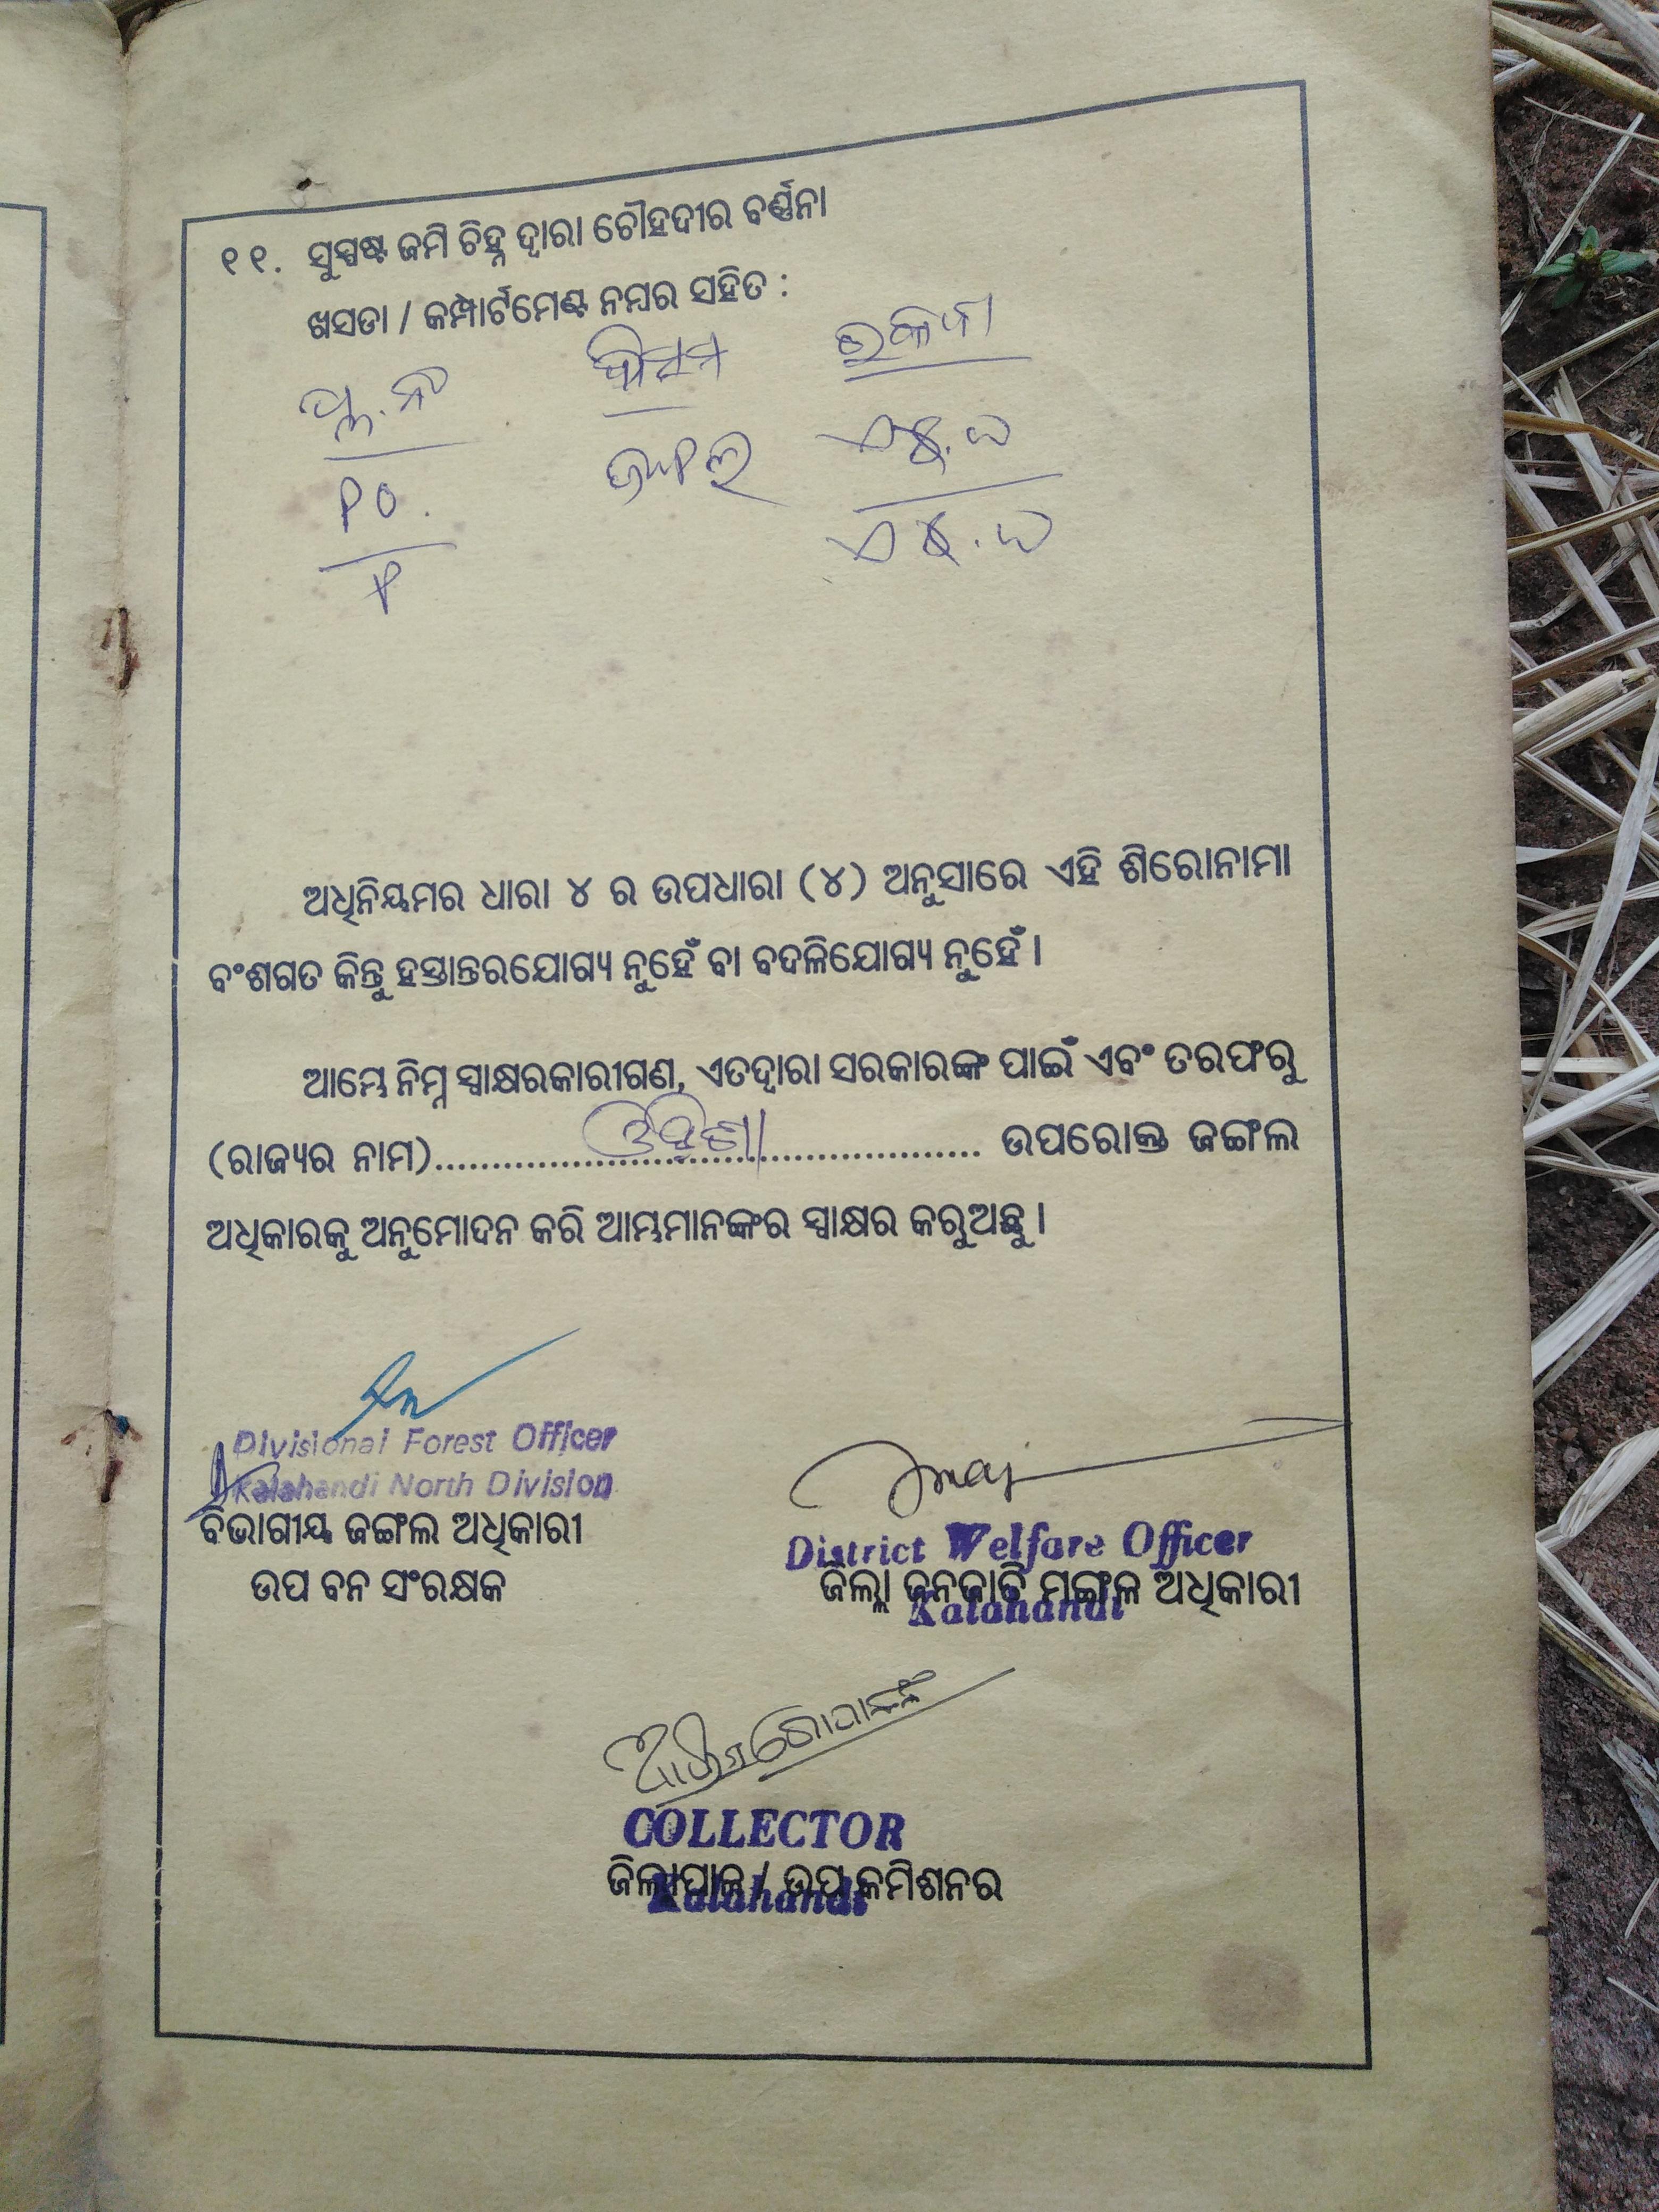 ୧୧. ସୁସ୍ପଷ୍ଟ ଜମି ଚିହ୍ନ ଦ୍ୱାରା ଚୌହଦୀର ବର୍ଣ୍ଣନା
ଖସଡା / କମ୍ପାର୍ଟମେଣ୍ଟ ନମ୍ବର ସହିତ :
ପ୍ଲ.ନଂ କିସମ ରକବା
ଅଧିନିୟମର ଧାରା ୪ ର ଉପଧାରା (୪) ଅନୁସାରେ ଏହି ଶିରୋନାମା
ବଂଶଗତ କିନ୍ତୁ ହସ୍ତାନ୍ତରଯୋଗ୍ୟ ନୁହେଁ ବା ବଦଳିଯୋଗ୍ୟ ନୁହେଁ ।
ଆମ୍ଭେ ନିମ୍ନ ସ୍ୱାକ୍ଷରକାରୀଗଣ, ଏତଦ୍ୱାରା ସରକାରଙ୍କ ପାଇଁ ଏବଂ ତରଫରୁ
(ରାଜ୍ୟର ନାମ)..........ଓଡ଼ିଶା.......... ଉପରୋକ୍ତ ଜଙ୍ଗଲ
ଅଧିକାରକୁ ଅନୁମୋଦନ କରି ଆମ୍ଭମାନଙ୍କର ସ୍ୱାକ୍ଷର କରୁଅଛୁ ।
Divisional Forest Officer
Kalahandi North Division
ବିଭାଗୀୟ ଜଙ୍ଗଲ ଅଧିକାରୀ
ଉପ ବନ ସଂରକ୍ଷକ
District Welfare Officer
ଜିଲ୍ଲା ଜନଜାତି ମଙ୍ଗଳ ଅଧିକାରୀ
Kalahandi
COLLECTOR
ଜିଲ୍ଲାପାଳ / ଉପ କମିଶନର
Kalahandi